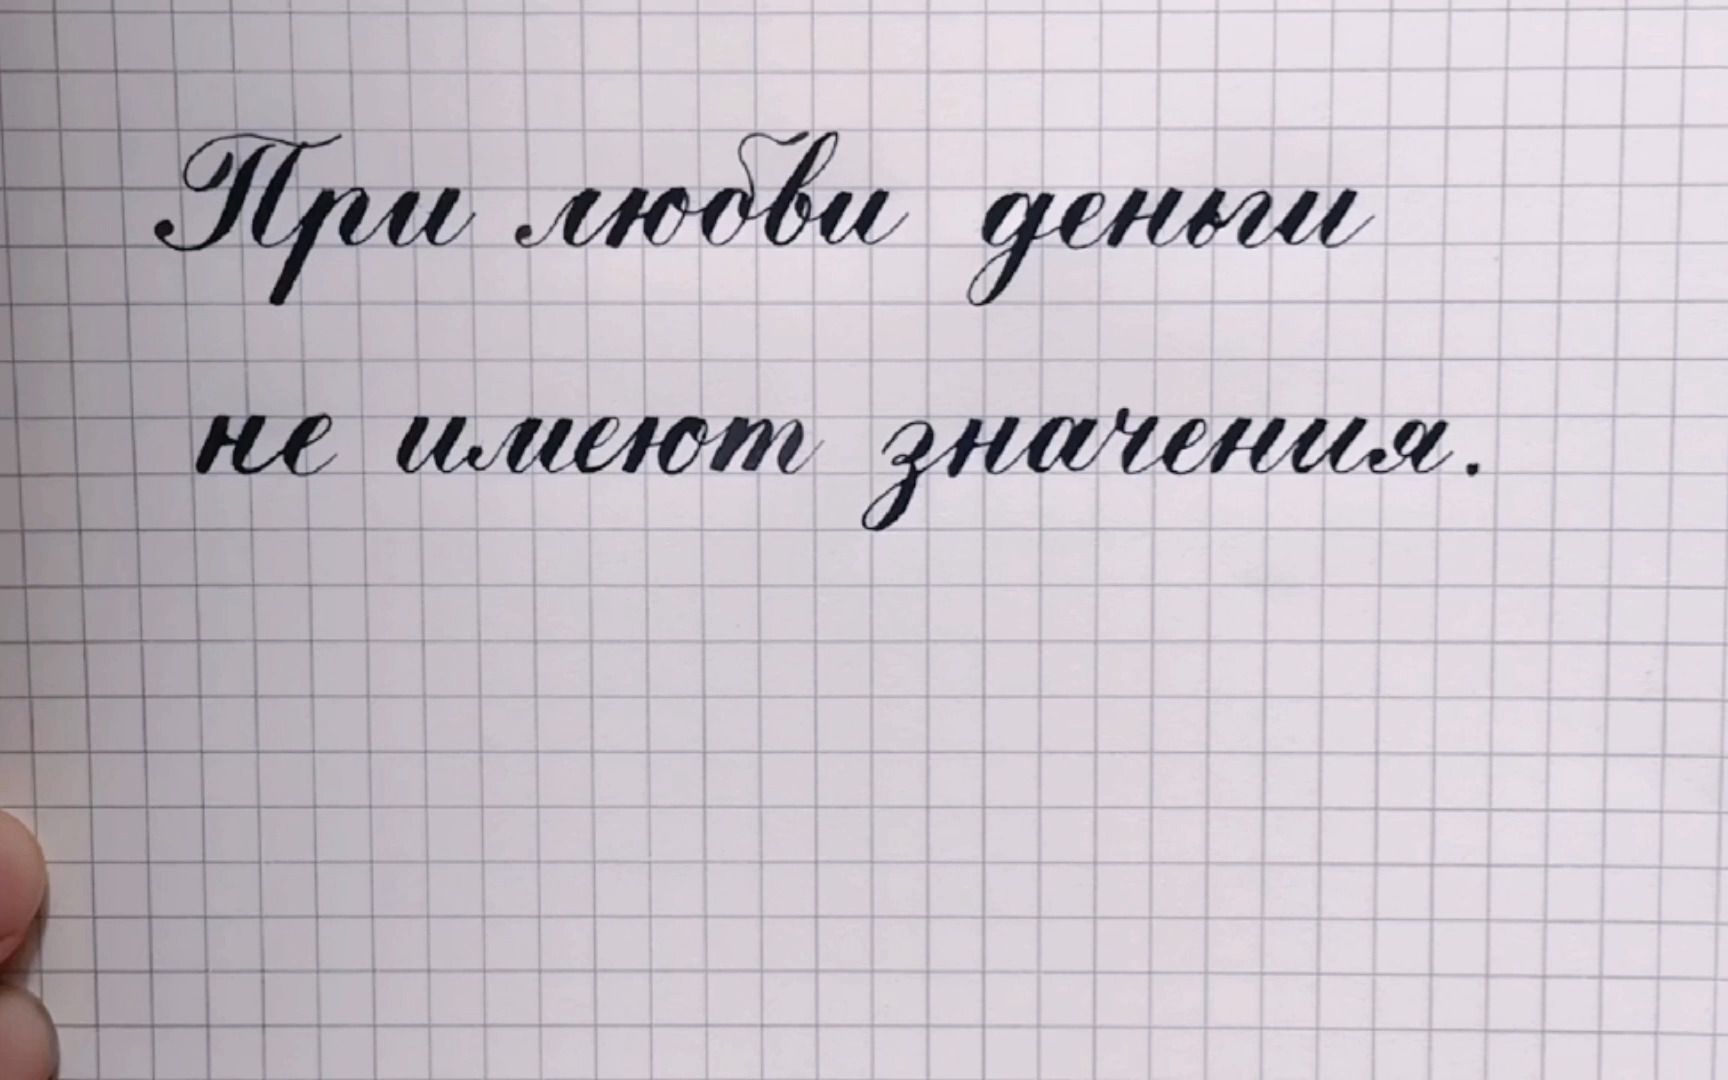 При любви деньги
не имеют значения.